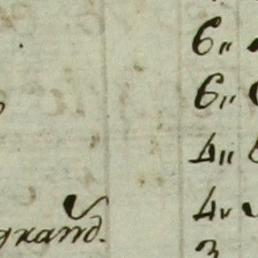 6"
6"
4"
4"
grand.
3